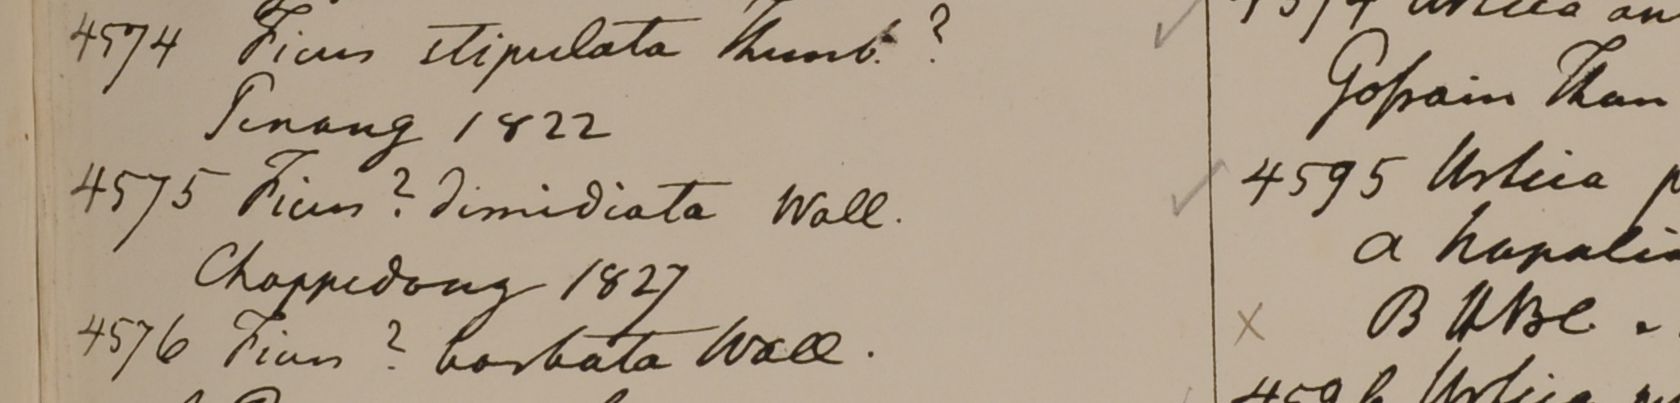 4574 Ficus stipulata Thunb. ?
Penang 1822
4575 Ficus ? dimidiata Wall.
Chappedong 1827
4576 Ficus ? barbata Wall.
Gossain Than
4595 Urtica
a
B HBC.
4596 Urtica